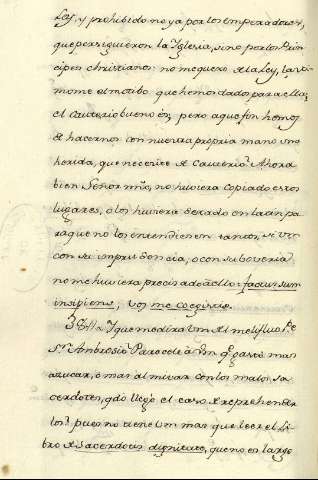 Ley, y prohibido no ya por los emperadores,
que persiguieron la Iglesia, sino por los Prin
cipes christianos: no me quexo de la Ley, lasti
mome el motibo que hemos dado para ella;
el Cauterio bueno es; pero a que fin hemos
de hacernos con nuestra propria mano una
herida, que necesite de Cauterio? Ahora
bien Señor mio, no huviera copiado estos
lugares, o los huviera dexado en latin pa
ra que no los entendiesen tantos, si Vos
con su imprudencia, o con su boveria
no me huviera precisado a ello: factus sum
insipiens, vos me coegistis.
3 Y que me dira Vm al melifluo Pe
Sn Ambrosio? Parecele a Vm qe gastò mas
azucar, o mas almivar con los malos sa
cerdotes, qdo llegò el caso de reprehender
los? pues no tiene Vm mas que leer el Li
bro de Sacerdotis dignitate, que no es largo